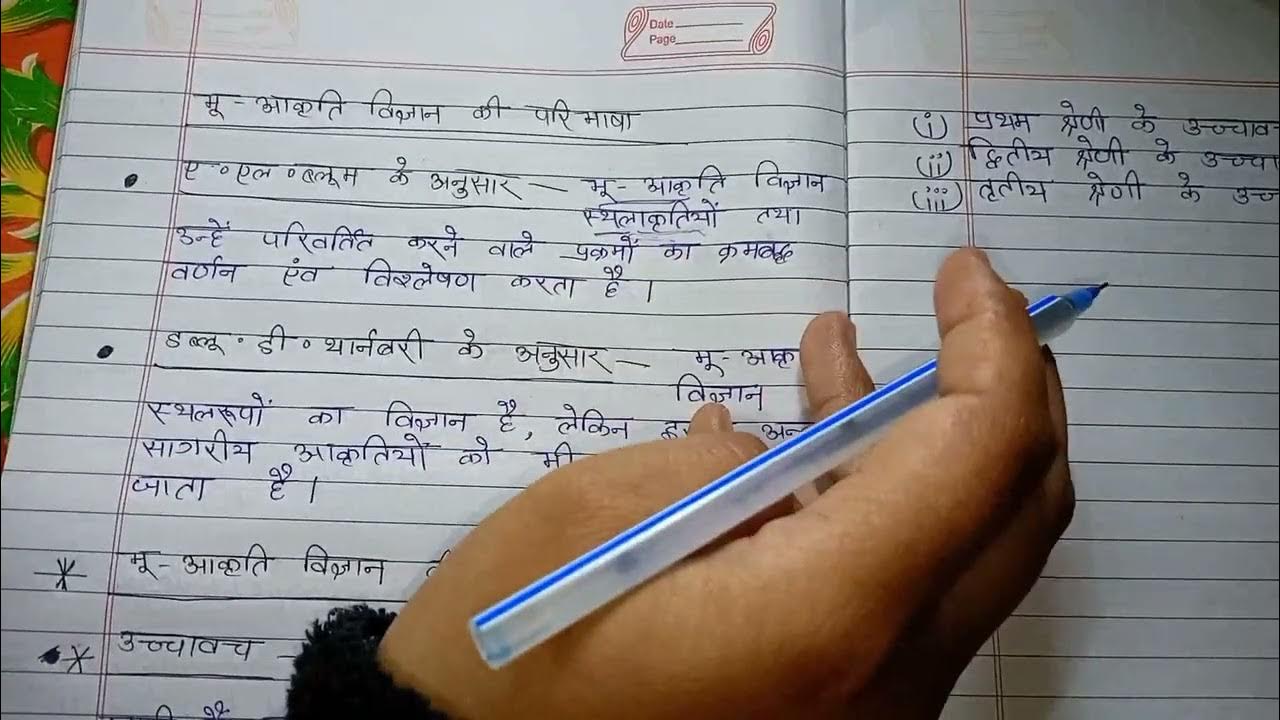 Date
Page
भू-आकृति विज्ञान की परिभाषा
ए॰एल॰ब्लूम के अनुसार — भू-आकृति विज्ञान
स्थलाकृतियों तथा
उन्हें परिवर्तित करने वाले प्रक्रमों का क्रमबद्ध
वर्णन एंव विश्लेषण करता है।
डब्लू॰डी॰थार्नबरी के अनुसार — भू-आकृ
विज्ञान
स्थलरूपों का विज्ञान है, लेकिन
सागरीय आकृतियों को भी
जाता है।
भू-आकृति विज्ञान
उच्चावच —
(i) प्रथम श्रेणी के उच्चाव
(ii) द्वितीय श्रेणी के उच्चा
(iii) तृतीय श्रेणी के उच्च